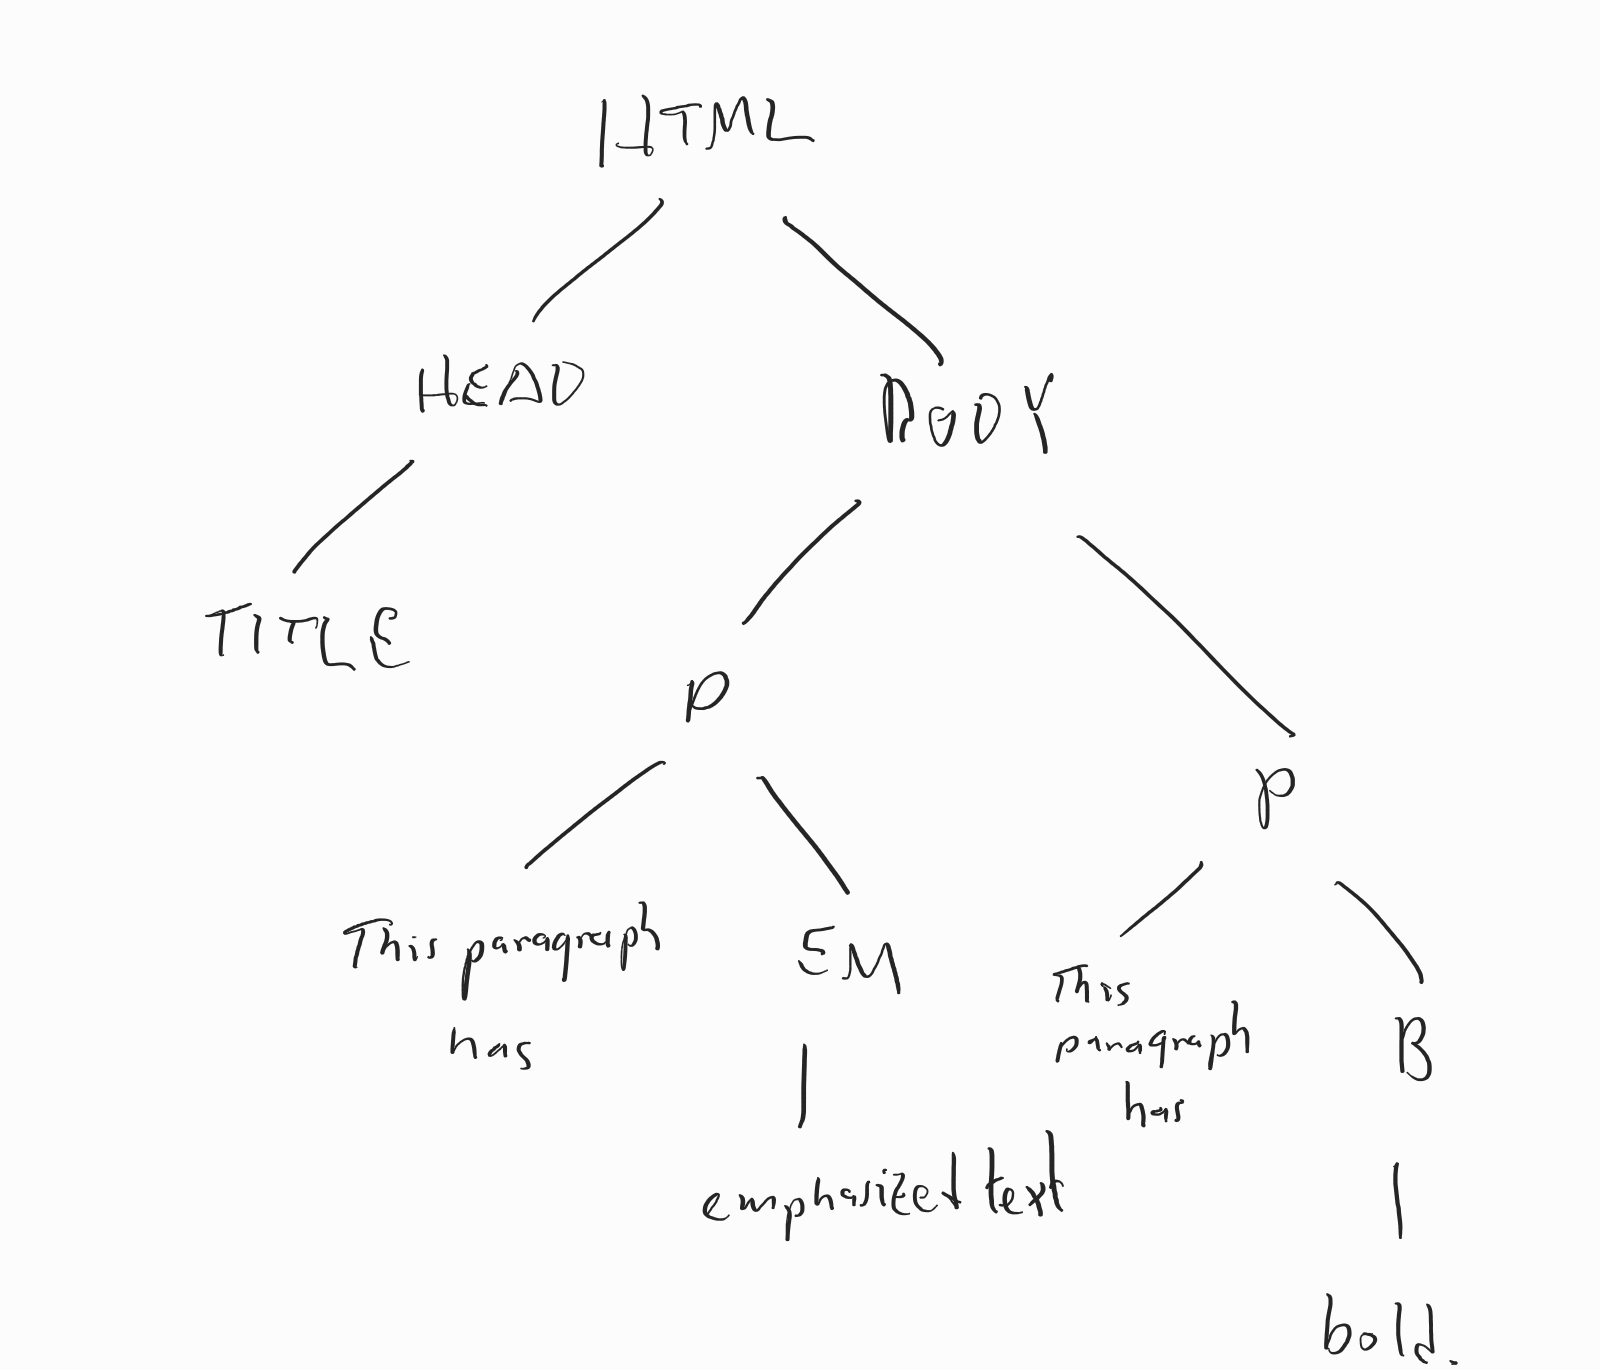 HTML
HEAD
BODY
TITLE
P
P
This paragraph
has
EM
This
paragraph
has
B
emphasized text
bold.